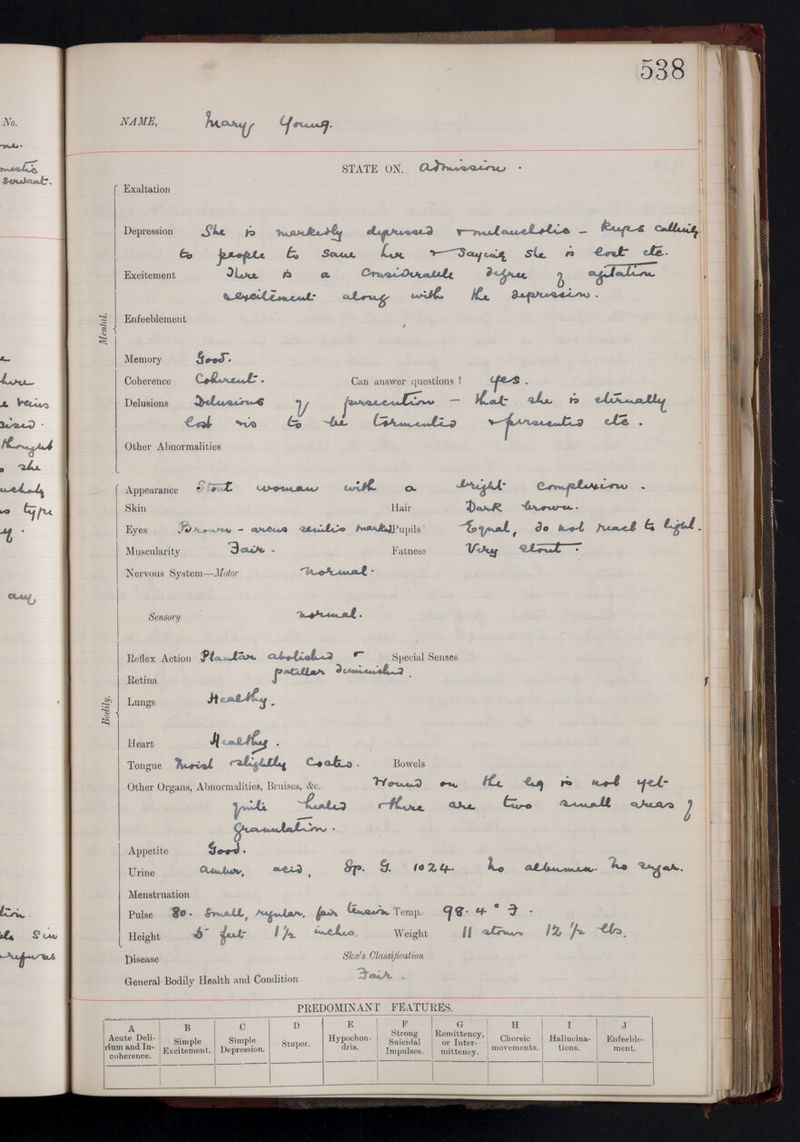 538
No.
NAME, Mary Young.
Servant.
STATE ON. Admission.
Exaltation
Depression She is markedly depressed & melancholic — keeps calling
to people to save her & saying she is lost etc.
Excitement There is a considerable degree of agitation
& excitement along with the depression.
Mental.
Enfeeblement
Memory Good.
Coherence Coherent. Can answer questions? Yes.
Delusions Delusions of persecution — that she is eternally
lost & is to be tormented & persecuted etc.
Other Abnormalities
Appearance Stout woman with a bright complexion.
Skin Hair Dark brown.
Eyes Brown - arcus senilis marked Pupils Equal, do not react to light.
Muscularity Fair. Fatness Very stout.
Nervous System—Motor Normal.
Sensory Normal.
Reflex Action Plantar abolished & Special Senses
patellar diminished.
Retina
Bodily.
Lungs Healthy.
Heart Healthy.
Tongue Moist & slightly coated. Bowels
Other Organs, Abnormalities, Bruises, &c. Wound on the leg is not yet
quite healed & there are two small areas of
granulation.
Appetite Good.
Urine Amber, acid, Sp. G. 1024. No albumen. No sugar.
Menstruation
Pulse 80. Small, regular, fair tension Temp. 98.4° F.
Height 5 feet 1 1/2 inches. Weight 11 stones 12 1/2 lbs.
Disease Skae's Classification
General Bodily Health and Condition Fair.
PREDOMINANT FEATURES.
A B C D E F G H I J
Acute Delirium and Incoherence. Simple Excitement. Simple Depression. Stupor. Hypochondria. Strong Suicidal Impulses. Remittency, or Intermittency. Choreic movements. Hallucinations. Enfeeblement.